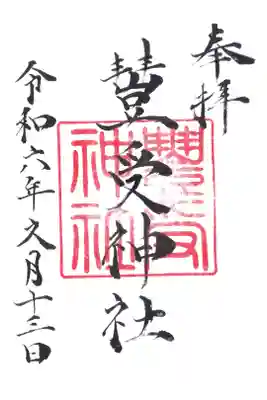 奉拝
豊受神社
豊受
神社
令和六年九月十三日